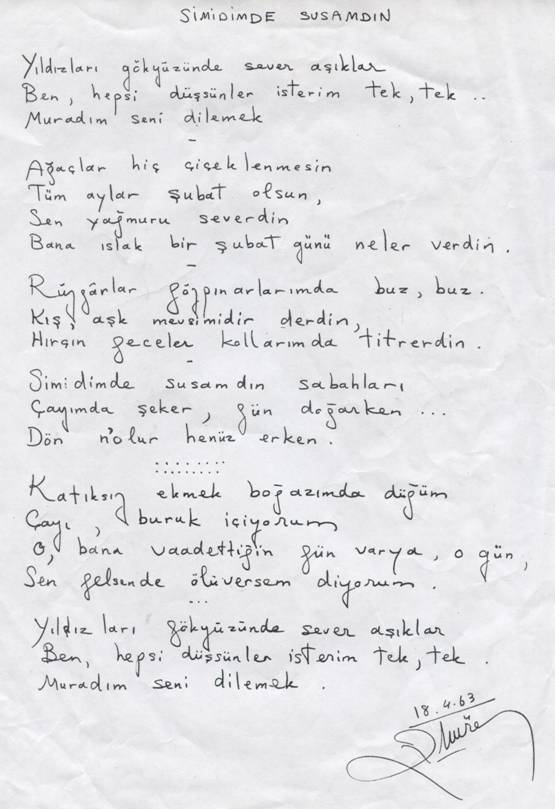 SİMİDİMDE SUSAMDIN
Yıldızları gökyüzünde sever aşıklar
Ben, hepsi düşsünler isterim tek, tek ..
Muradım seni dilemek
-
Ağaçlar hiç çiçeklenmesin
Tüm aylar şubat olsun,
Sen yağmuru severdin
Bana ıslak bir şubat günü neler verdin.
-
Rüzgârlar gözpınarlarımda buz, buz.
Kış, aşk mevsimidir derdin,
Hırçın geceler kollarımda titrerdin.
-
Simidimde susamdın sabahları
Çayımda şeker, gün doğarken ...
Dön n'olur henüz erken.
Katıksız ekmek boğazımda düğüm
Çayı, buruk içiyorum
O, bana vaadettiğin gün varya, o gün,
Sen gelsende ölüversem diyorum.
...
Yıldızları gökyüzünde sever aşıklar
Ben, hepsi düşsünler isterim tek, tek.
Muradım seni dilemek.
18.4.63